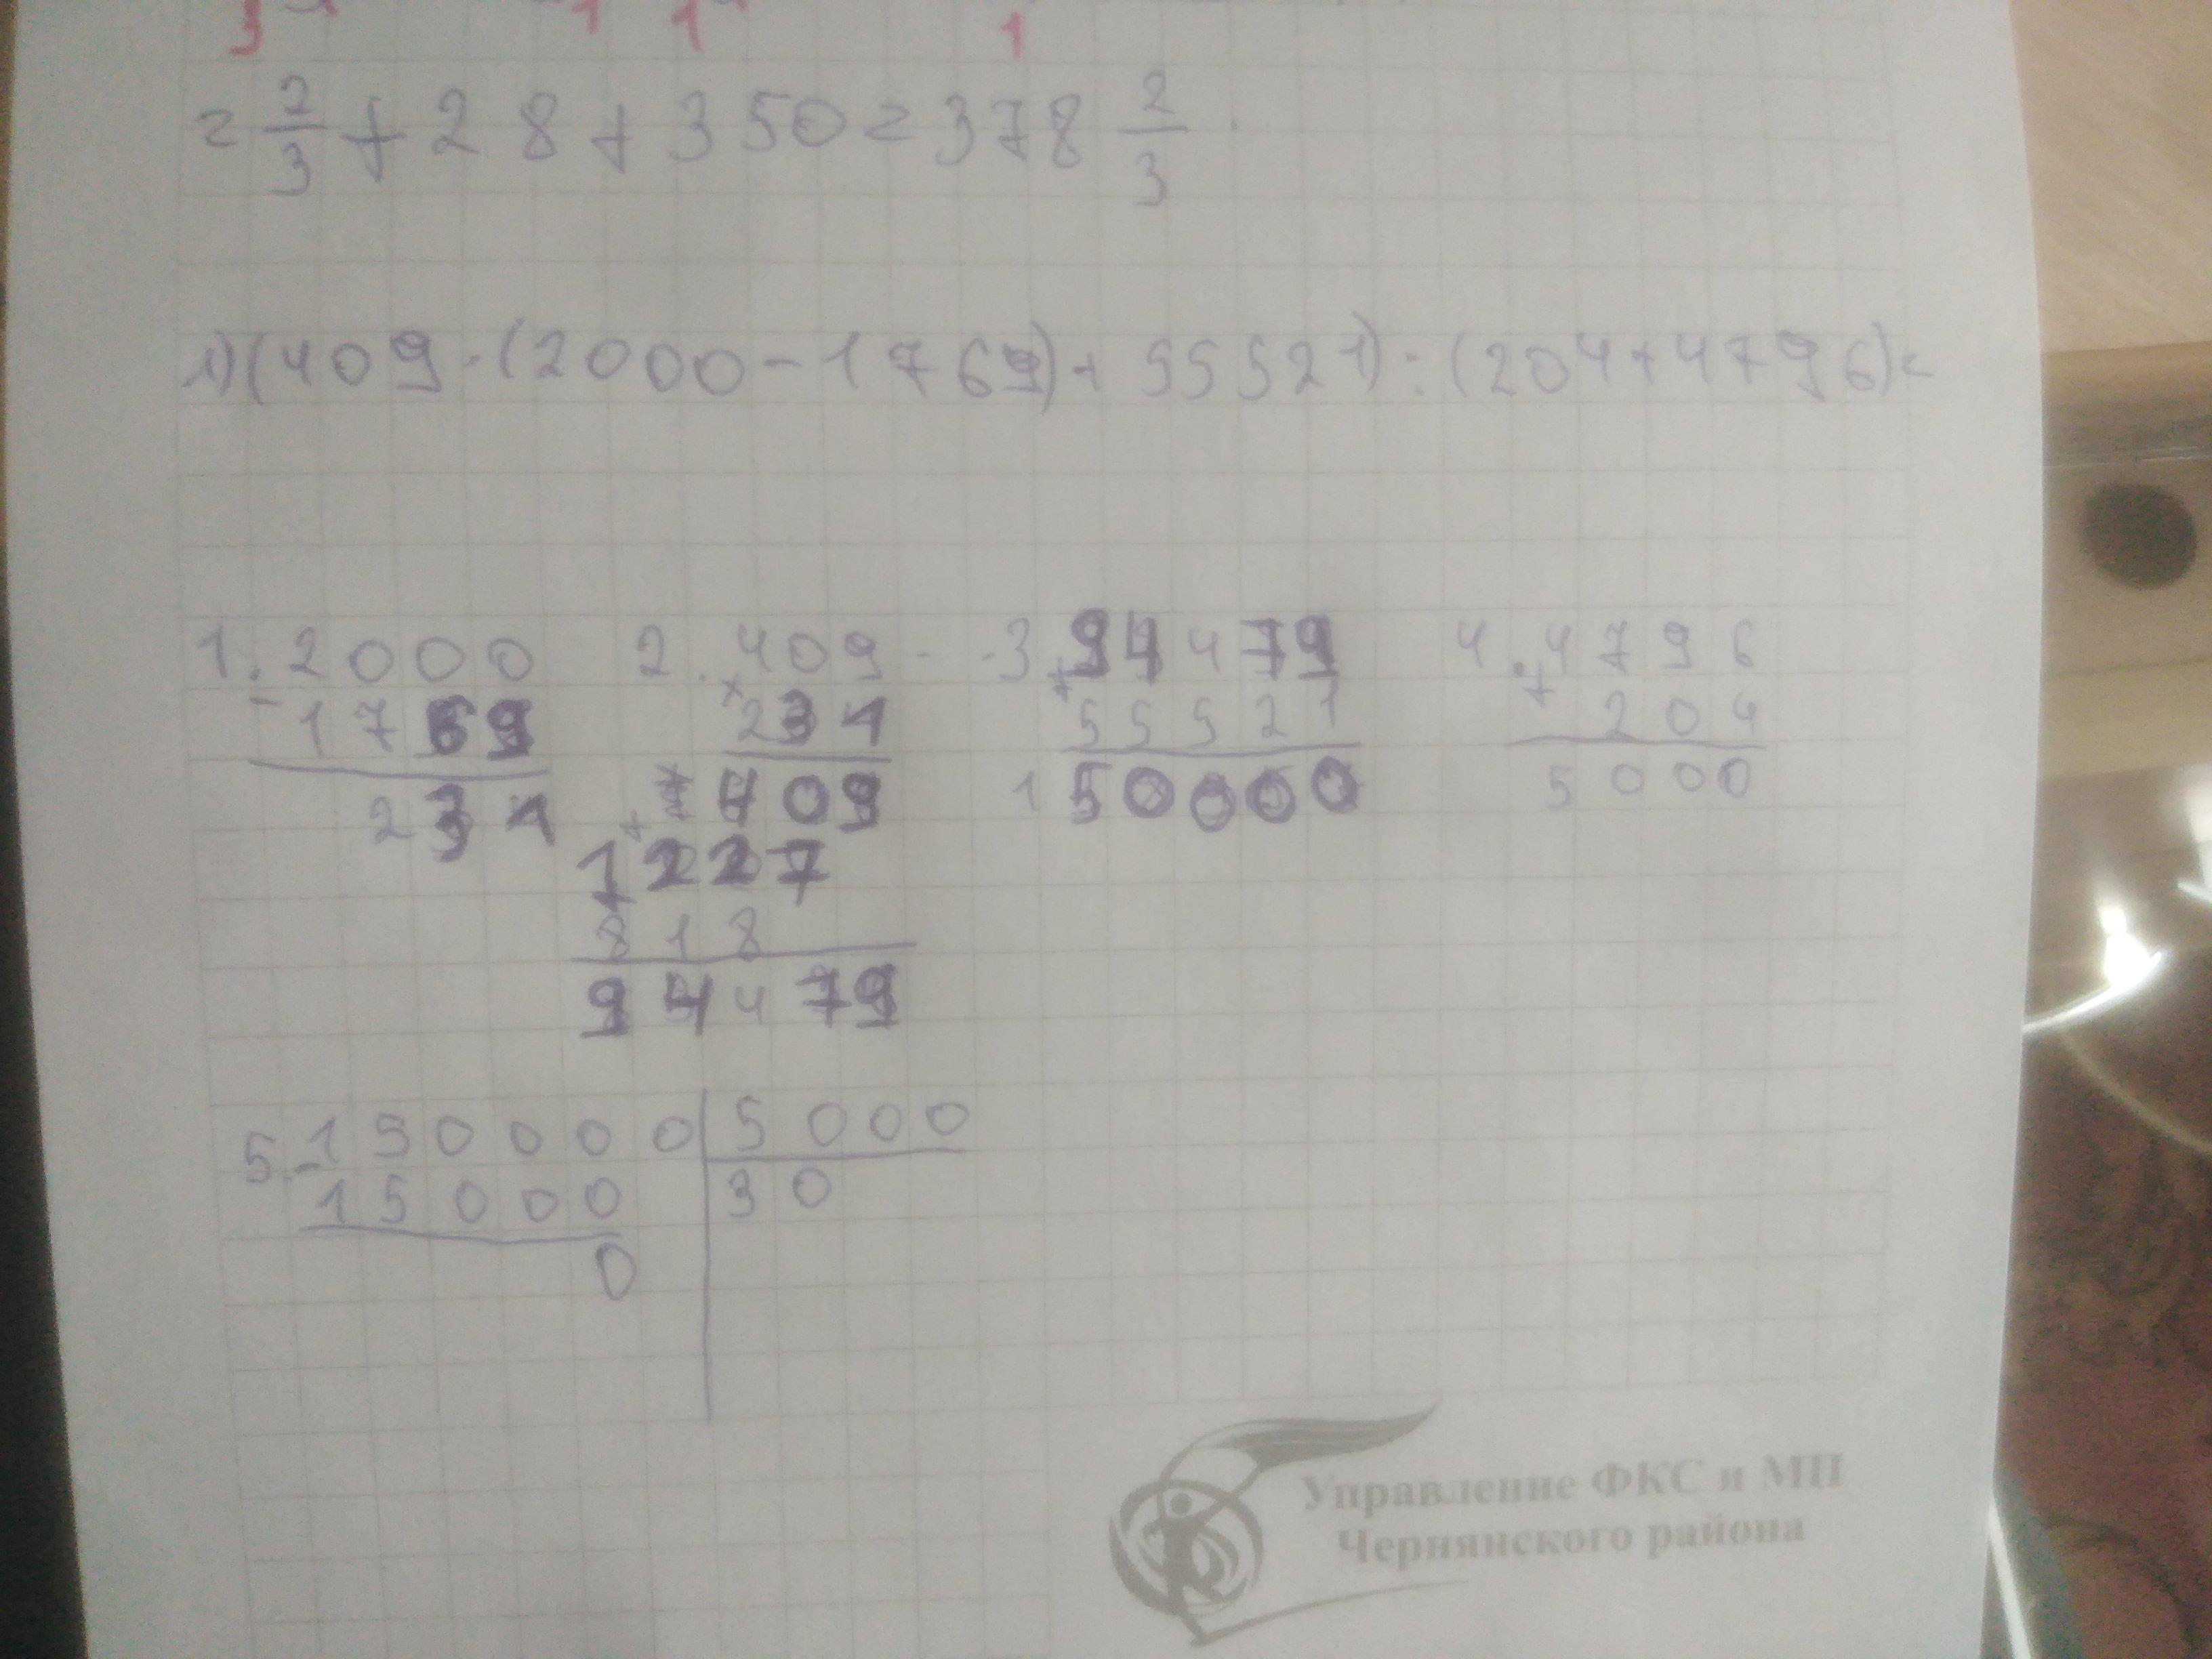 = 2/3 + 28 + 350 = 378 2/3.
1) (409 · (2000 - 1769) + 55521) : (204 + 4796) =
1. 2000 2. 409 3. 94479 4. 4796
- 1769 × 231 + 55521 + 204
231 409 150000 5000
+ 1227
818
94479
5. 150000 | 5000
- 15000 | 30
0
Управление ФКС и МП
Чернянского района